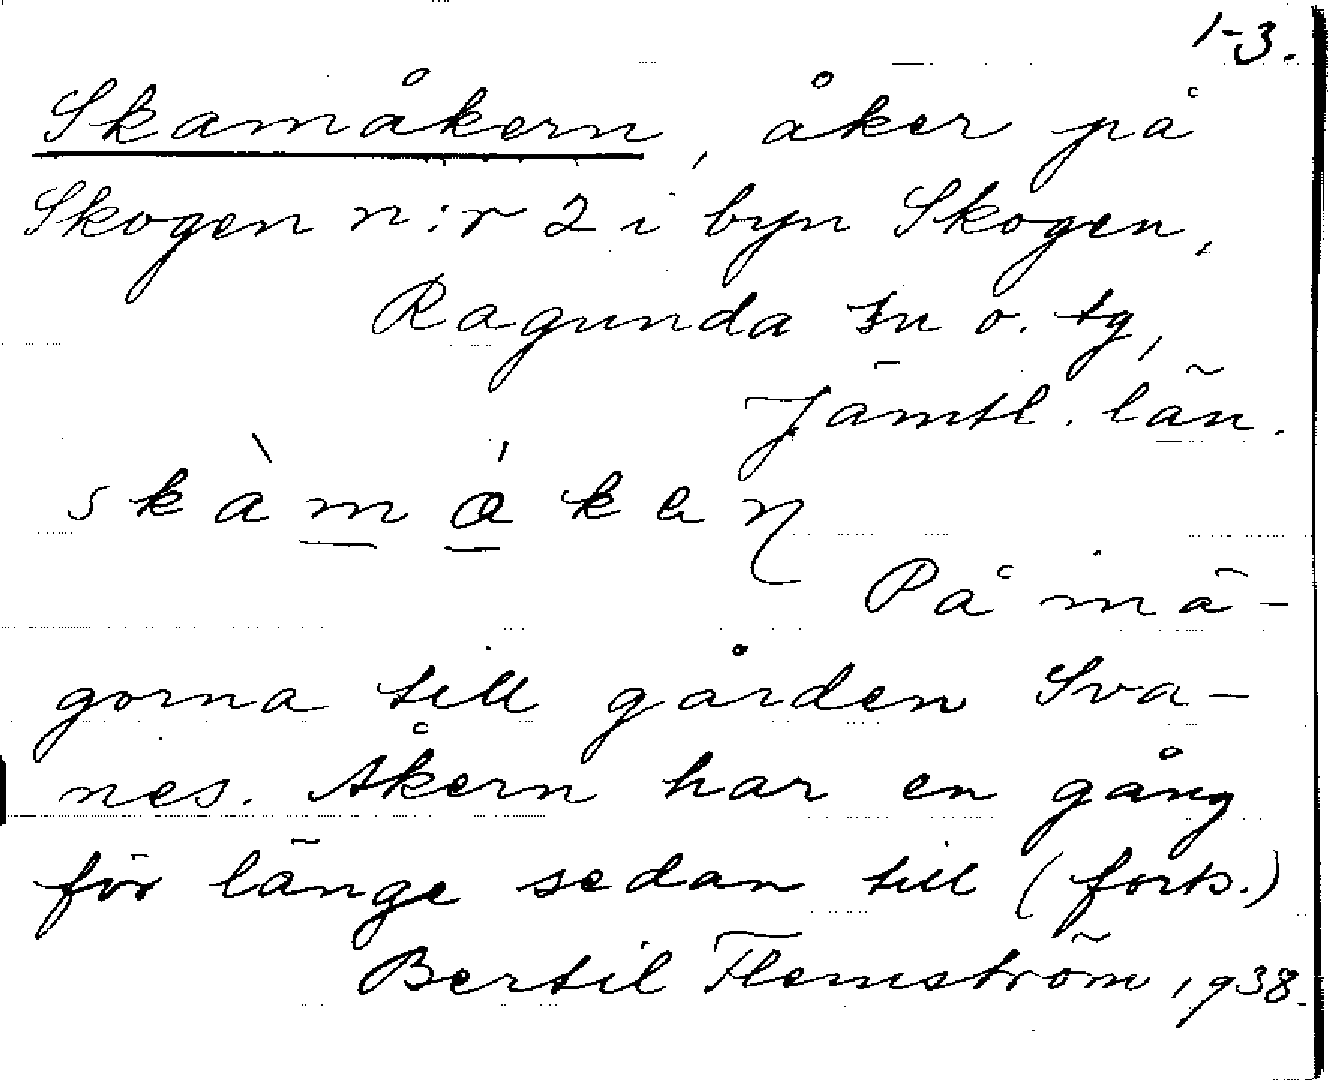 1-3.
Skamåkern, åker på
Skogen n:r 2 i byn Skogen,
Ragunda sn o. tg,
Jämtl. län.
skàmákeɳ
På mä-
gorna till gården Sva-
nes. Åkern har en gång
för länge sedan till (forts.)
Bertil Flemström, 1938.